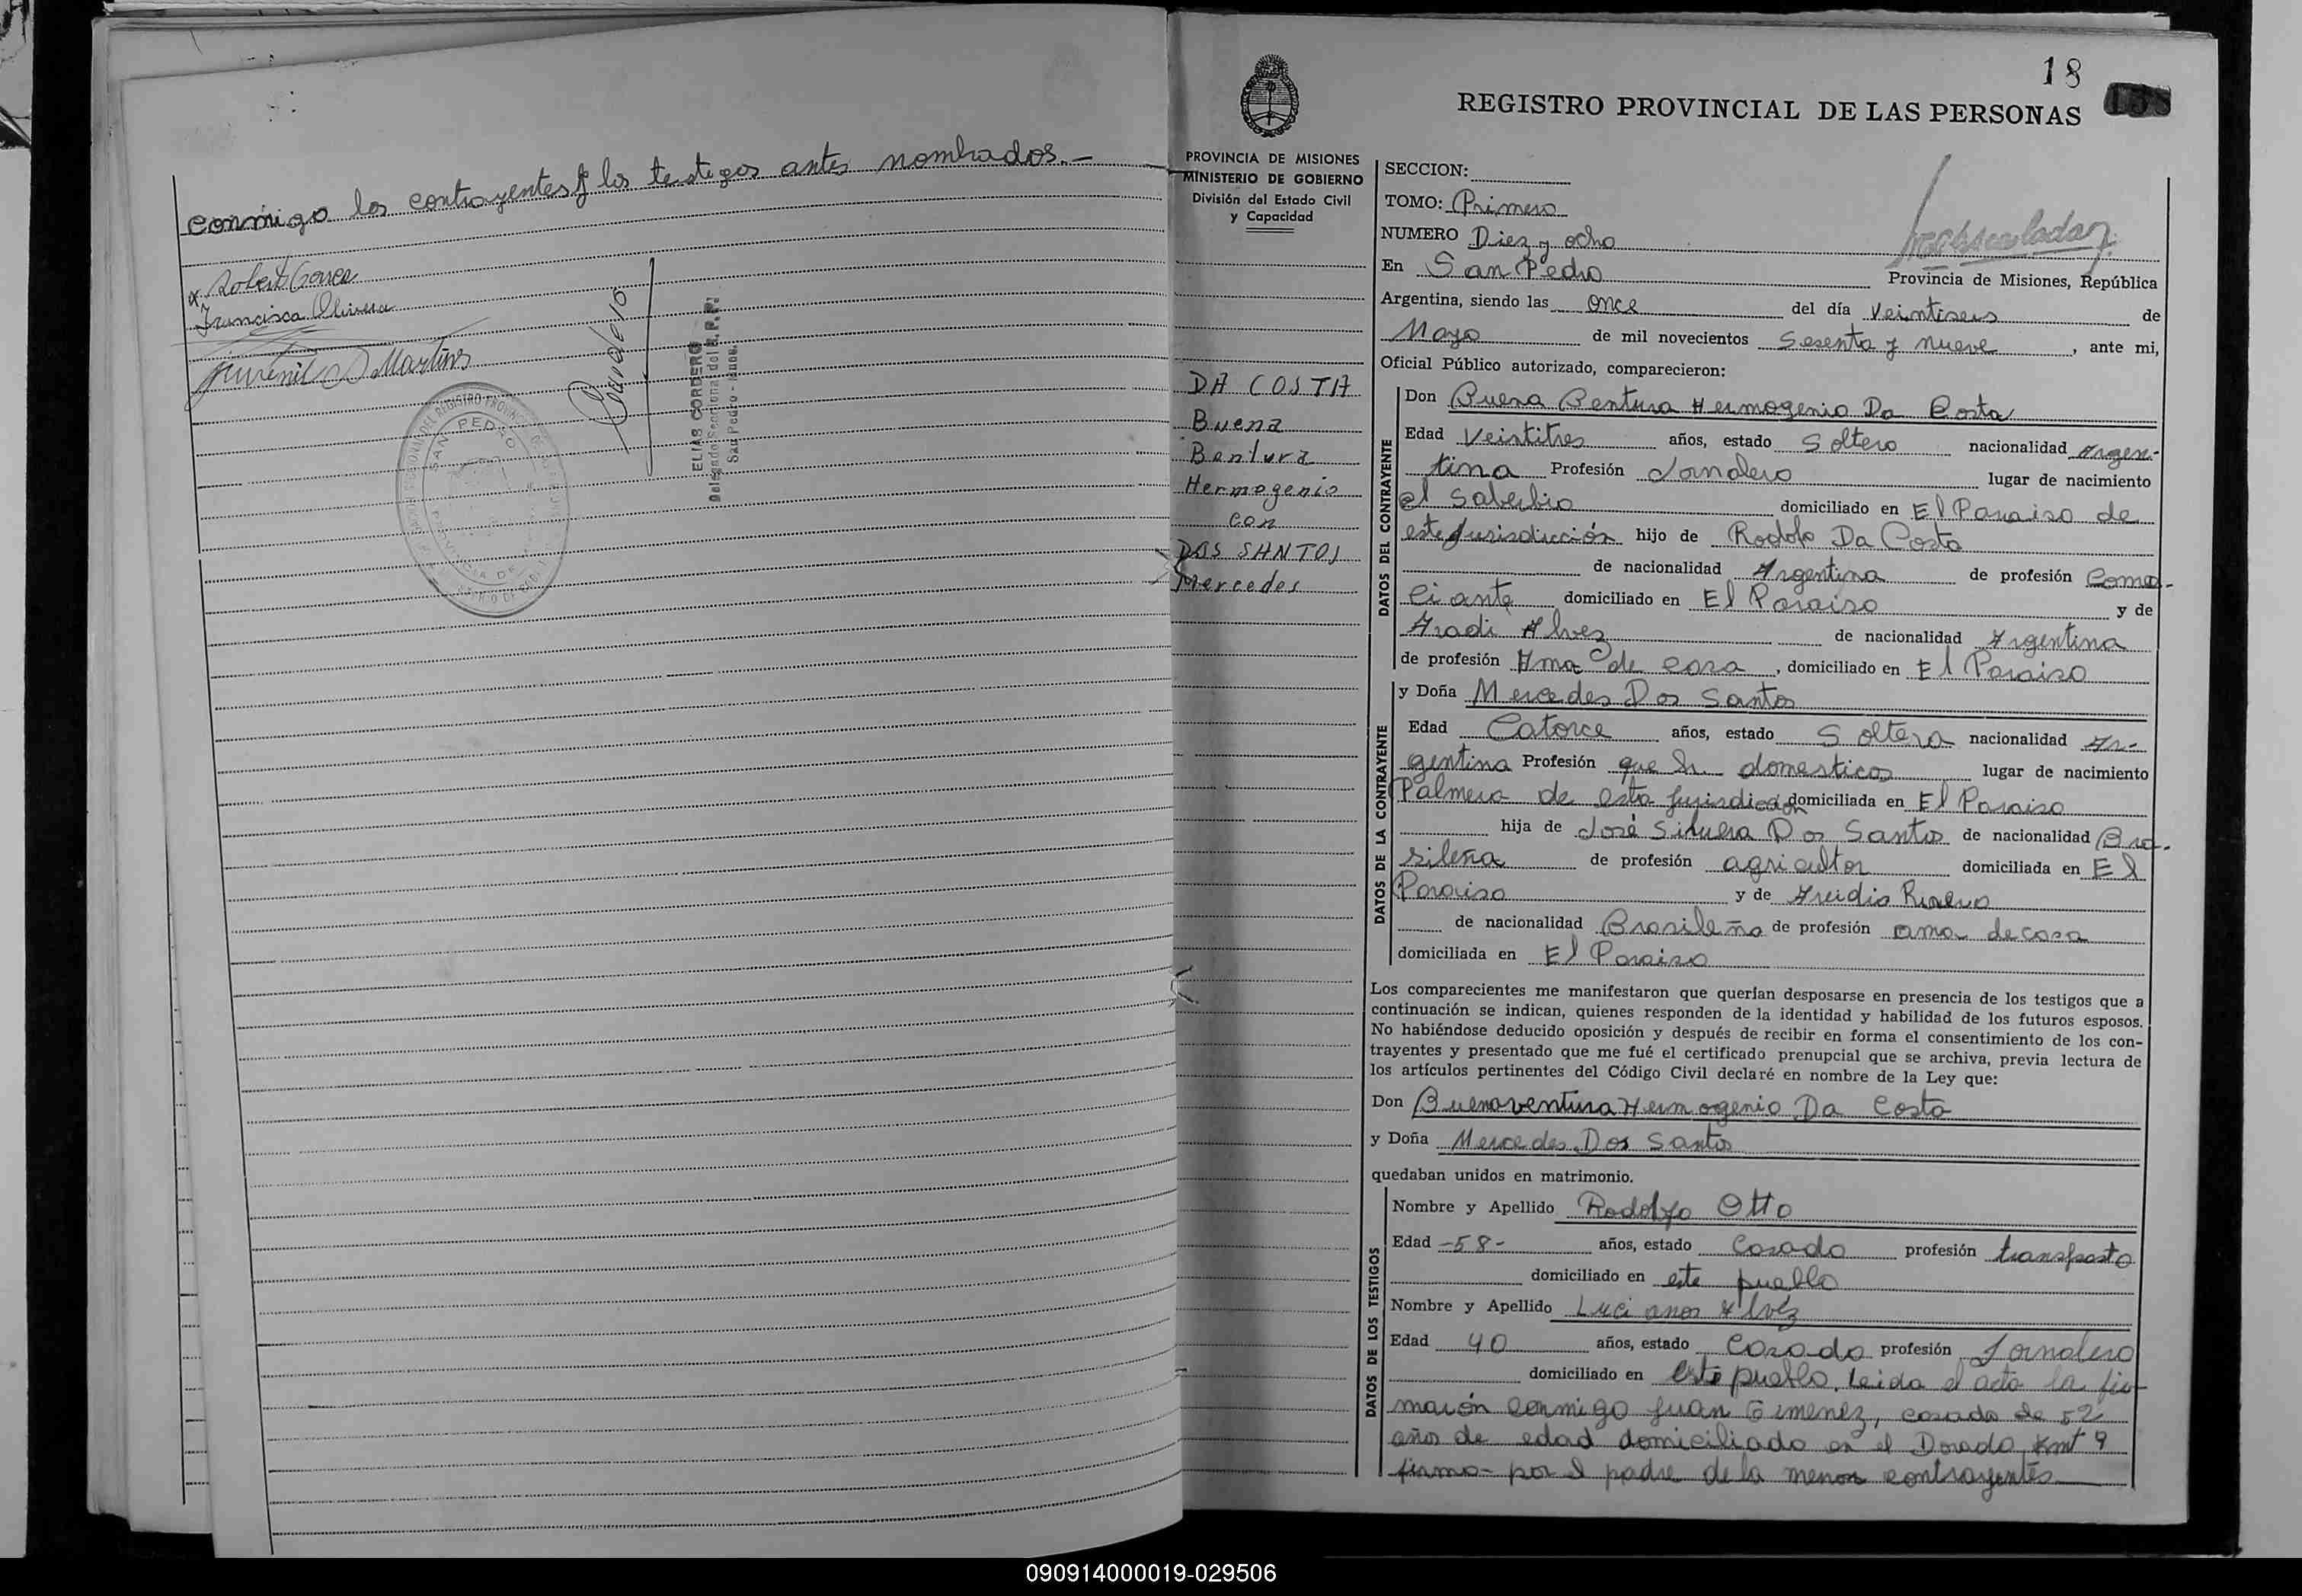 conmigo los contrayentes y los testigos antes nombrados.-
Francisca Olivera
Juvenil D Martins
SAN PEDRO
ELIAS CORDERO
Delegado Seccional del R. P. P.
San Pedro - Mnes.
18
REGISTRO PROVINCIAL DE LAS PERSONAS
PROVINCIA DE MISIONES
MINISTERIO DE GOBIERNO
División del Estado Civil
y Capacidad
DA COSTA
Buena
Bentura
Hermogenio
con
DOS SANTOS
Mercedes
SECCION:
TOMO: Primero
NUMERO Diez y ocho
En San Pedro Provincia de Misiones, República
Argentina, siendo las once del día Veintiseis de
Mayo de mil novecientos Sesenta y nueve, ante mi,
Oficial Público autorizado, comparecieron:
DATOS DEL CONTRAYENTE
Don Buena Bentura Hermogenio Da Costa
Edad Veintitres años, estado Soltero nacionalidad Argen-
tina Profesión Jornalero lugar de nacimiento
el Soberbio domiciliado en El Paraiso de
esta Jurisdicción hijo de Rodolfo Da Costa
de nacionalidad Argentina de profesión Comer-
ciante domiciliado en El Paraiso y de
Aradi Alvez de nacionalidad Argentina
de profesión Ama de casa, domiciliado en El Paraiso
DATOS DE LA CONTRAYENTE
y Doña Mercedes Dos Santos
Edad Catorce años, estado Soltera nacionalidad Ar-
gentina Profesión que h. domesticos lugar de nacimiento
Palmera de esta jurisdiccion domiciliada en El Paraiso
hija de José Sikuera Dos Santos de nacionalidad Bra-
sileña de profesión agricultor domiciliada en El
Paraiso y de
de nacionalidad Brasileña de profesión ama de casa
domiciliada en El Paraiso
Los comparecientes me manifestaron que querían desposarse en presencia de los testigos que a
continuación se indican, quienes responden de la identidad y habilidad de los futuros esposos.
No habiéndose deducido oposición y después de recibir en forma el consentimiento de los con-
trayentes y presentado que me fué el certificado prenupcial que se archiva, previa lectura de
los artículos pertinentes del Código Civil declaré en nombre de la Ley que:
Don Buenaventura Hermogenio Da Costa
y Doña Mercedes Dos Santos
quedaban unidos en matrimonio.
DATOS DE LOS TESTIGOS
Nombre y Apellido Rodolfo Otto
Edad -58- años, estado Casado profesión transporto
domiciliado en este pueblo
Nombre y Apellido Lucianos Alvez
Edad 40 años, estado Casado profesión Jornalero
domiciliado en este pueblo, leida el acta la fir-
maron conmigo Juan Gimenez, casado de 52
años de edad domiciliado en el Dorado kmt 9
firma- por el padre de la menor contrayentes
090914000019-029506